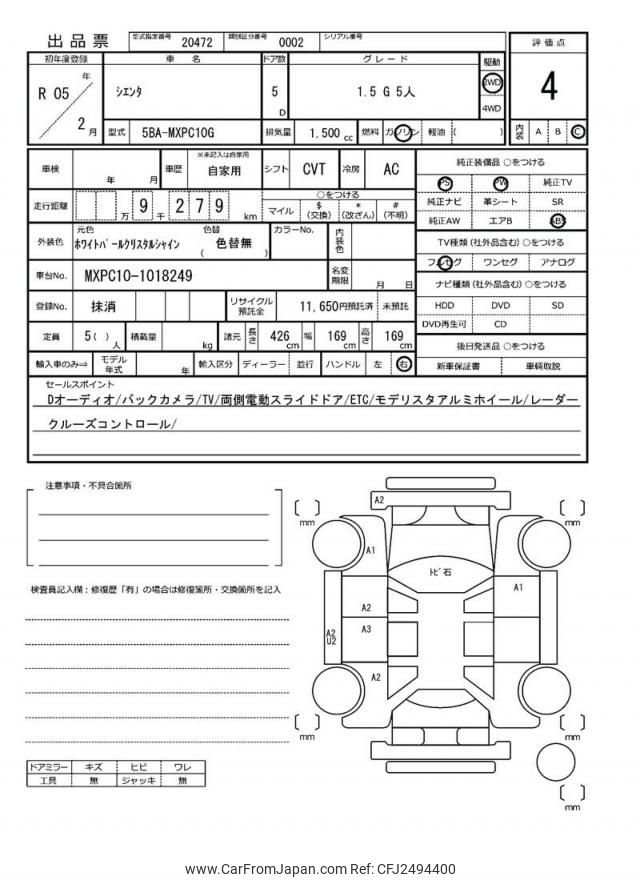 出品票
型式指定番号 20472 類別区分番号 0002 シリアル番号
初年度登録 車名 ドア数 グレード 駆動 評価点
R 05 年 2 月
シエンタ 5 D 1.5 G 5人 2WD 4WD
4
型式 5BA-MXPC10G 排気量 1.500 cc 燃料 ガソリン 軽油 ( )
内装 A B C
車検 年 月 車歴 ※未記入は自家用 自家用 シフト CVT 冷房 AC
純正装備品 ○をつける
PS PW 純正TV
純正ナビ 革シート SR
純正AW エアB ABS
走行距離 万 9 千 2 7 9 km
○をつける
マイル $ (交換) * (改ざん) # (不明)
外装色 元色 ホワイトパールクリスタルシャイン 色替 ( 色替無 ) カラーNo. 内装色
TV種類(社外品含む)○をつける
フルセグ ワンセグ アナログ
車台No. MXPC10-1018249 名変期限 月 日
ナビ種類(社外品含む)○をつける
HDD DVD SD
DVD再生可 CD
登録No. 抹消 リサイクル預託金 11,650円預託済 未預託
定員 5( ) 人 積載量 kg 諸元 長さ 426 cm 幅 169 cm 高さ 169 cm
後日発送品 ○をつける
新車保証書 車輌取説
輸入車のみ⇒ モデル年式 年 輸入区分 ディーラー 並行 ハンドル 左 右
セールスポイント
Dオーディオ/バックカメラ/TV/両側電動スライドドア/ETC/モデリスタアルミホイール/レーダー
クルーズコントロール/
注意事項・不具合箇所
検査員記入欄:修復歴「有」の場合は修復箇所・交換箇所を記入
A2
mm
mm
A1
トビ石
A2
A1
A2
U2
A3
A2
mm
mm
mm
ドアミラー キズ ヒビ ワレ
工具 無 ジャッキ 無
www.CarFromJapan.com Ref: CFJ2494400